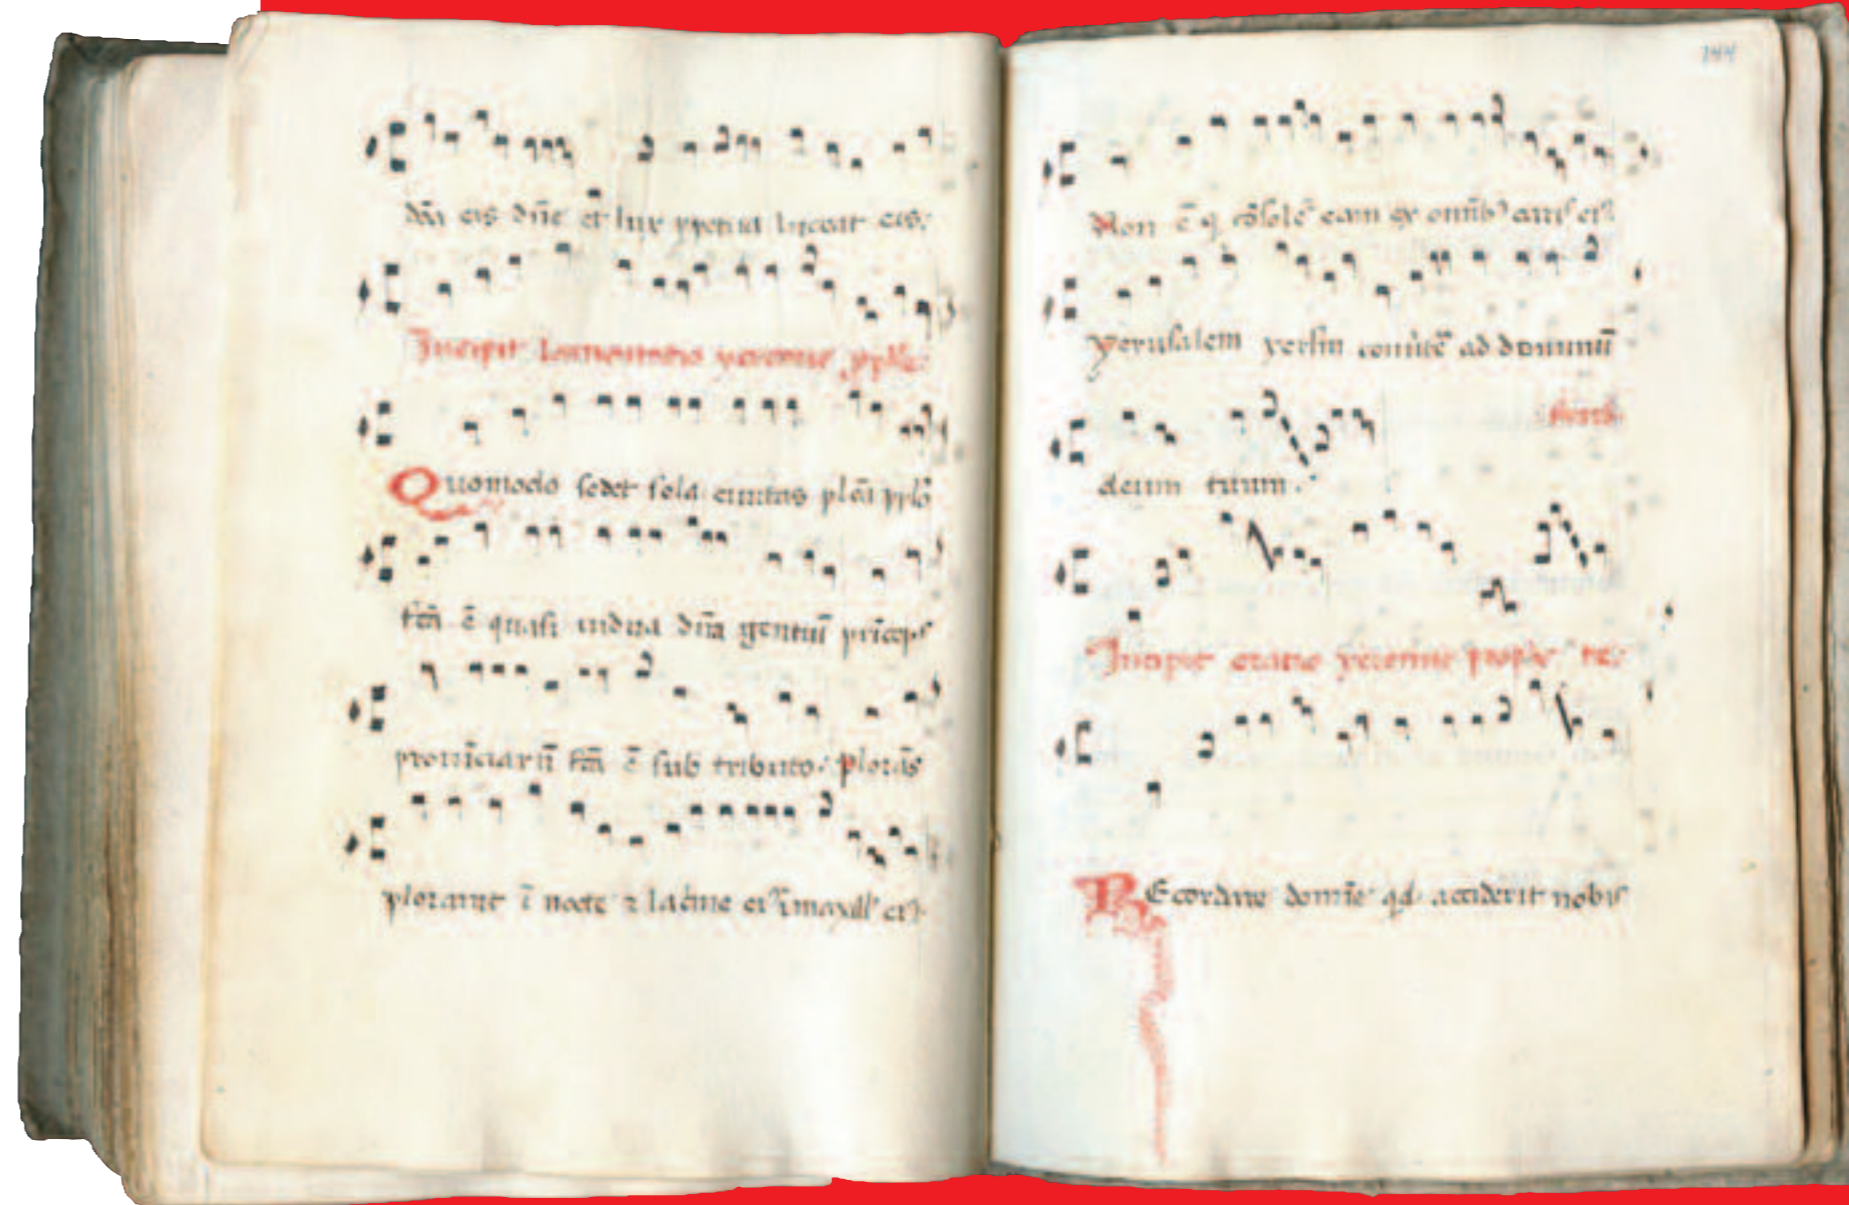 dn̄i eis dn̄e et lux perpetua luceat eis:
Incipit lamentatio yeremie pphē:
Quomodo sedet sola ciuitas plēa pplō
fc̄ā ē quasi uidua dn̄a gentiū pri̅ceps
prouīciarū fc̄ā ē sub tributo: Plorās
plorauit ī nocte ⁊ lac̄me eiꝰ ī maxill' eiꝰ:
144
Non ē q̄ cōsolēt eam ex omīb' caris eiꝰ
yerusalem yerl̄m conūtē ad dominū
deum tuum:
Incipit oratio yeremie prophe te:
REcordare domīe qd acciderit nobis